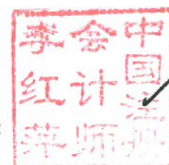 中国注册
会计师
李红